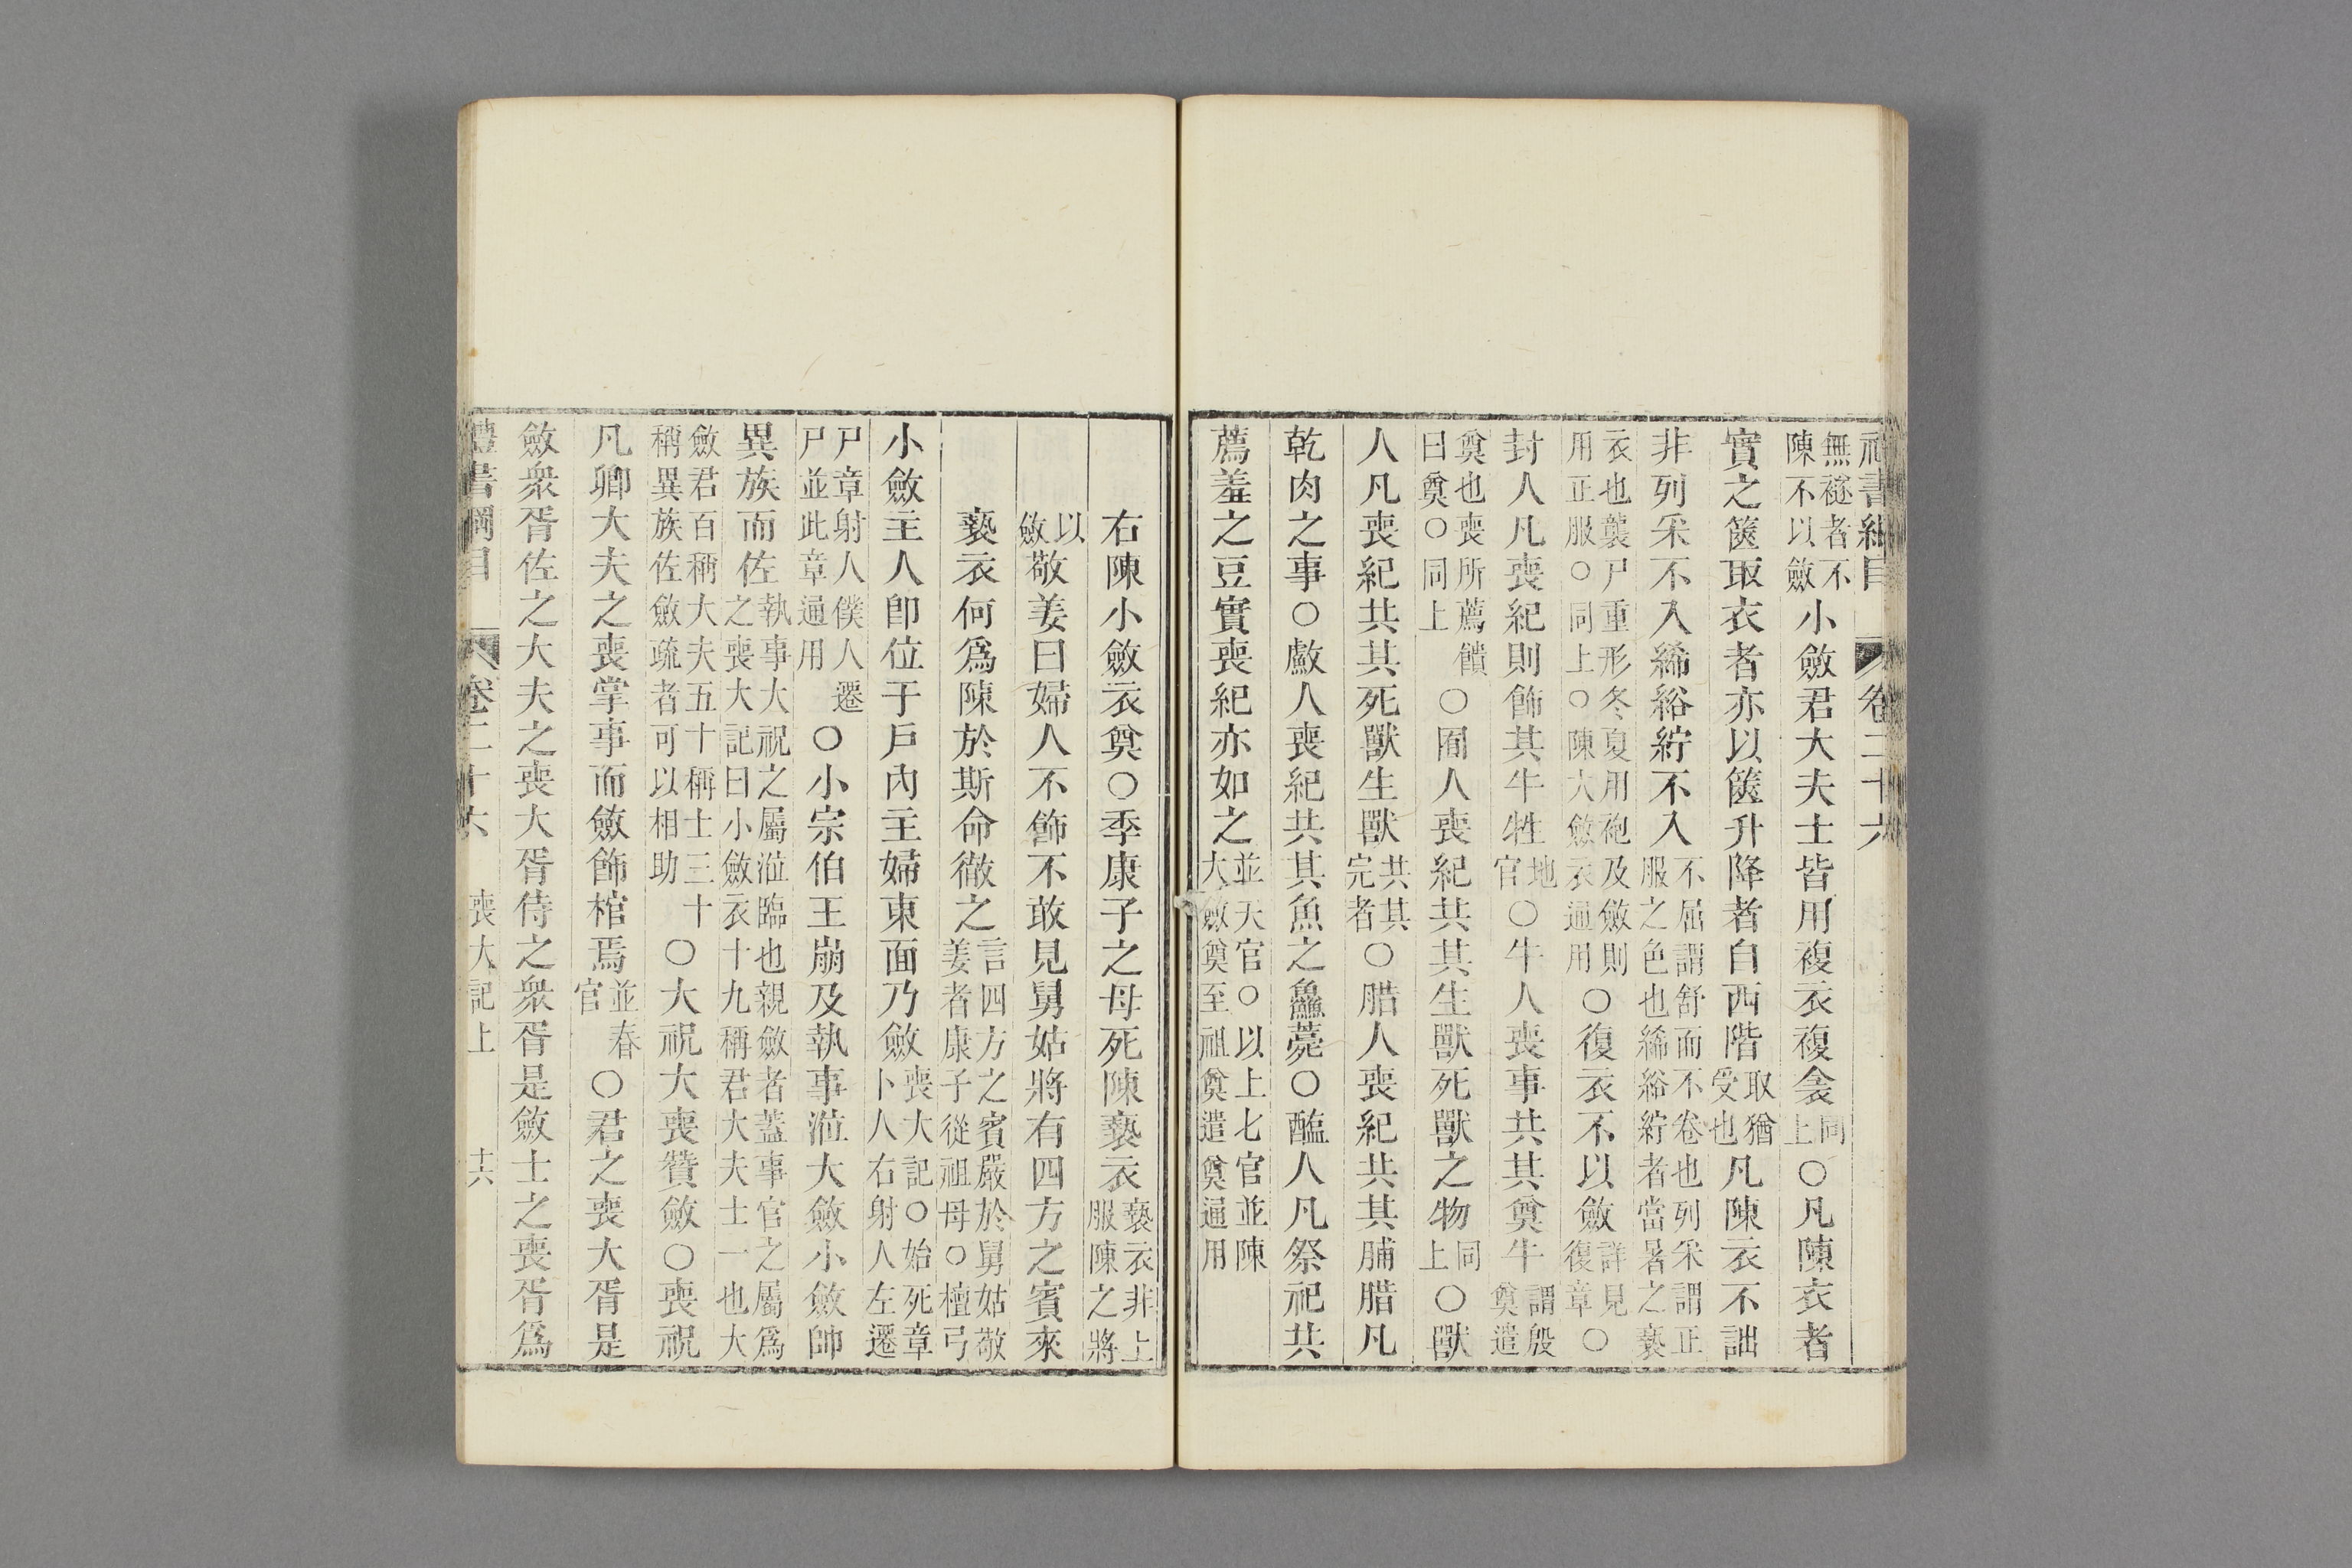 禮書綱目 卷二十六
無襚者不陳不以斂小斂君大夫士皆用複衣複衾同上○凡陳衣者
實之篋取衣者亦以篋升降者自西階取猶受也凡陳衣不詘
非列采不入絺綌紵不入不屈謂舒而不卷也列采謂正服之色也絺綌紵者當暑之褻
衣也襲尸重形冬夏用袍及斂則用正服○同上○陳大斂衣通用○復衣不以斂詳見復章○
封人凡喪紀則飾其牛牲地官○牛人喪事共其奠牛謂殷奠遣
奠也喪所薦饋曰奠○同上○囿人喪紀共其生獸死獸之物同上○獸
人凡喪紀共其死獸生獸共其完者○腊人喪紀共其脯腊凡
乾肉之事○䱷人喪紀共其魚之鱻薧○醢人凡祭祀共
薦羞之豆實喪紀亦如之並天官○以上七官並陳大斂奠至祖奠遣奠通用
右陳小斂衣奠○季康子之母死陳褻衣褻衣非上服陳之將
以斂敬姜曰婦人不飾不敢見舅姑將有四方之賓來
褻衣何爲陳於斯命徹之言四方之賓嚴於舅姑敬姜者康子從祖母○檀弓
小斂主人卽位于戶內主婦東面乃斂喪大記○始死章卜人右射人左遷
尸章射人僕人遷尸並此章通用○小宗伯王崩及執事涖大斂小斂帥
異族而佐執事大祝之屬涖臨也親斂者蓋事官之屬爲之喪大記曰小斂衣十九稱君大夫士一也大
斂君百稱大夫五十稱士三十稱異族佐斂疏者可以相助○大祝大喪贊斂○喪祝
凡卿大夫之喪掌事而斂飾棺焉並春官○君之喪大胥是
斂衆胥佐之大夫之喪大胥侍之衆胥是斂士之喪胥爲
禮書綱目 卷二十六 喪大記上 十六